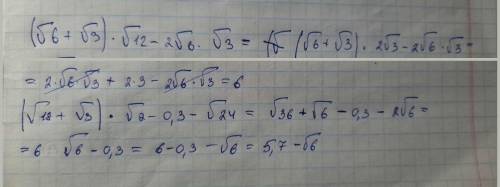 (√6 + √3) · √12 − 2√6 · √3 = (√6 + √3) · 2√3 − 2√6 · √3 =
= 2 · √6 · √3 + 2 · 3 − 2√6 · √3 = 6
(√12 + √3) · √2 − 0,3 − √24 = √36 + √6 − 0,3 − 2√6 =
= 6 √6 − 0,3 = 6 − 0,3 − √6 = 5,7 − √6